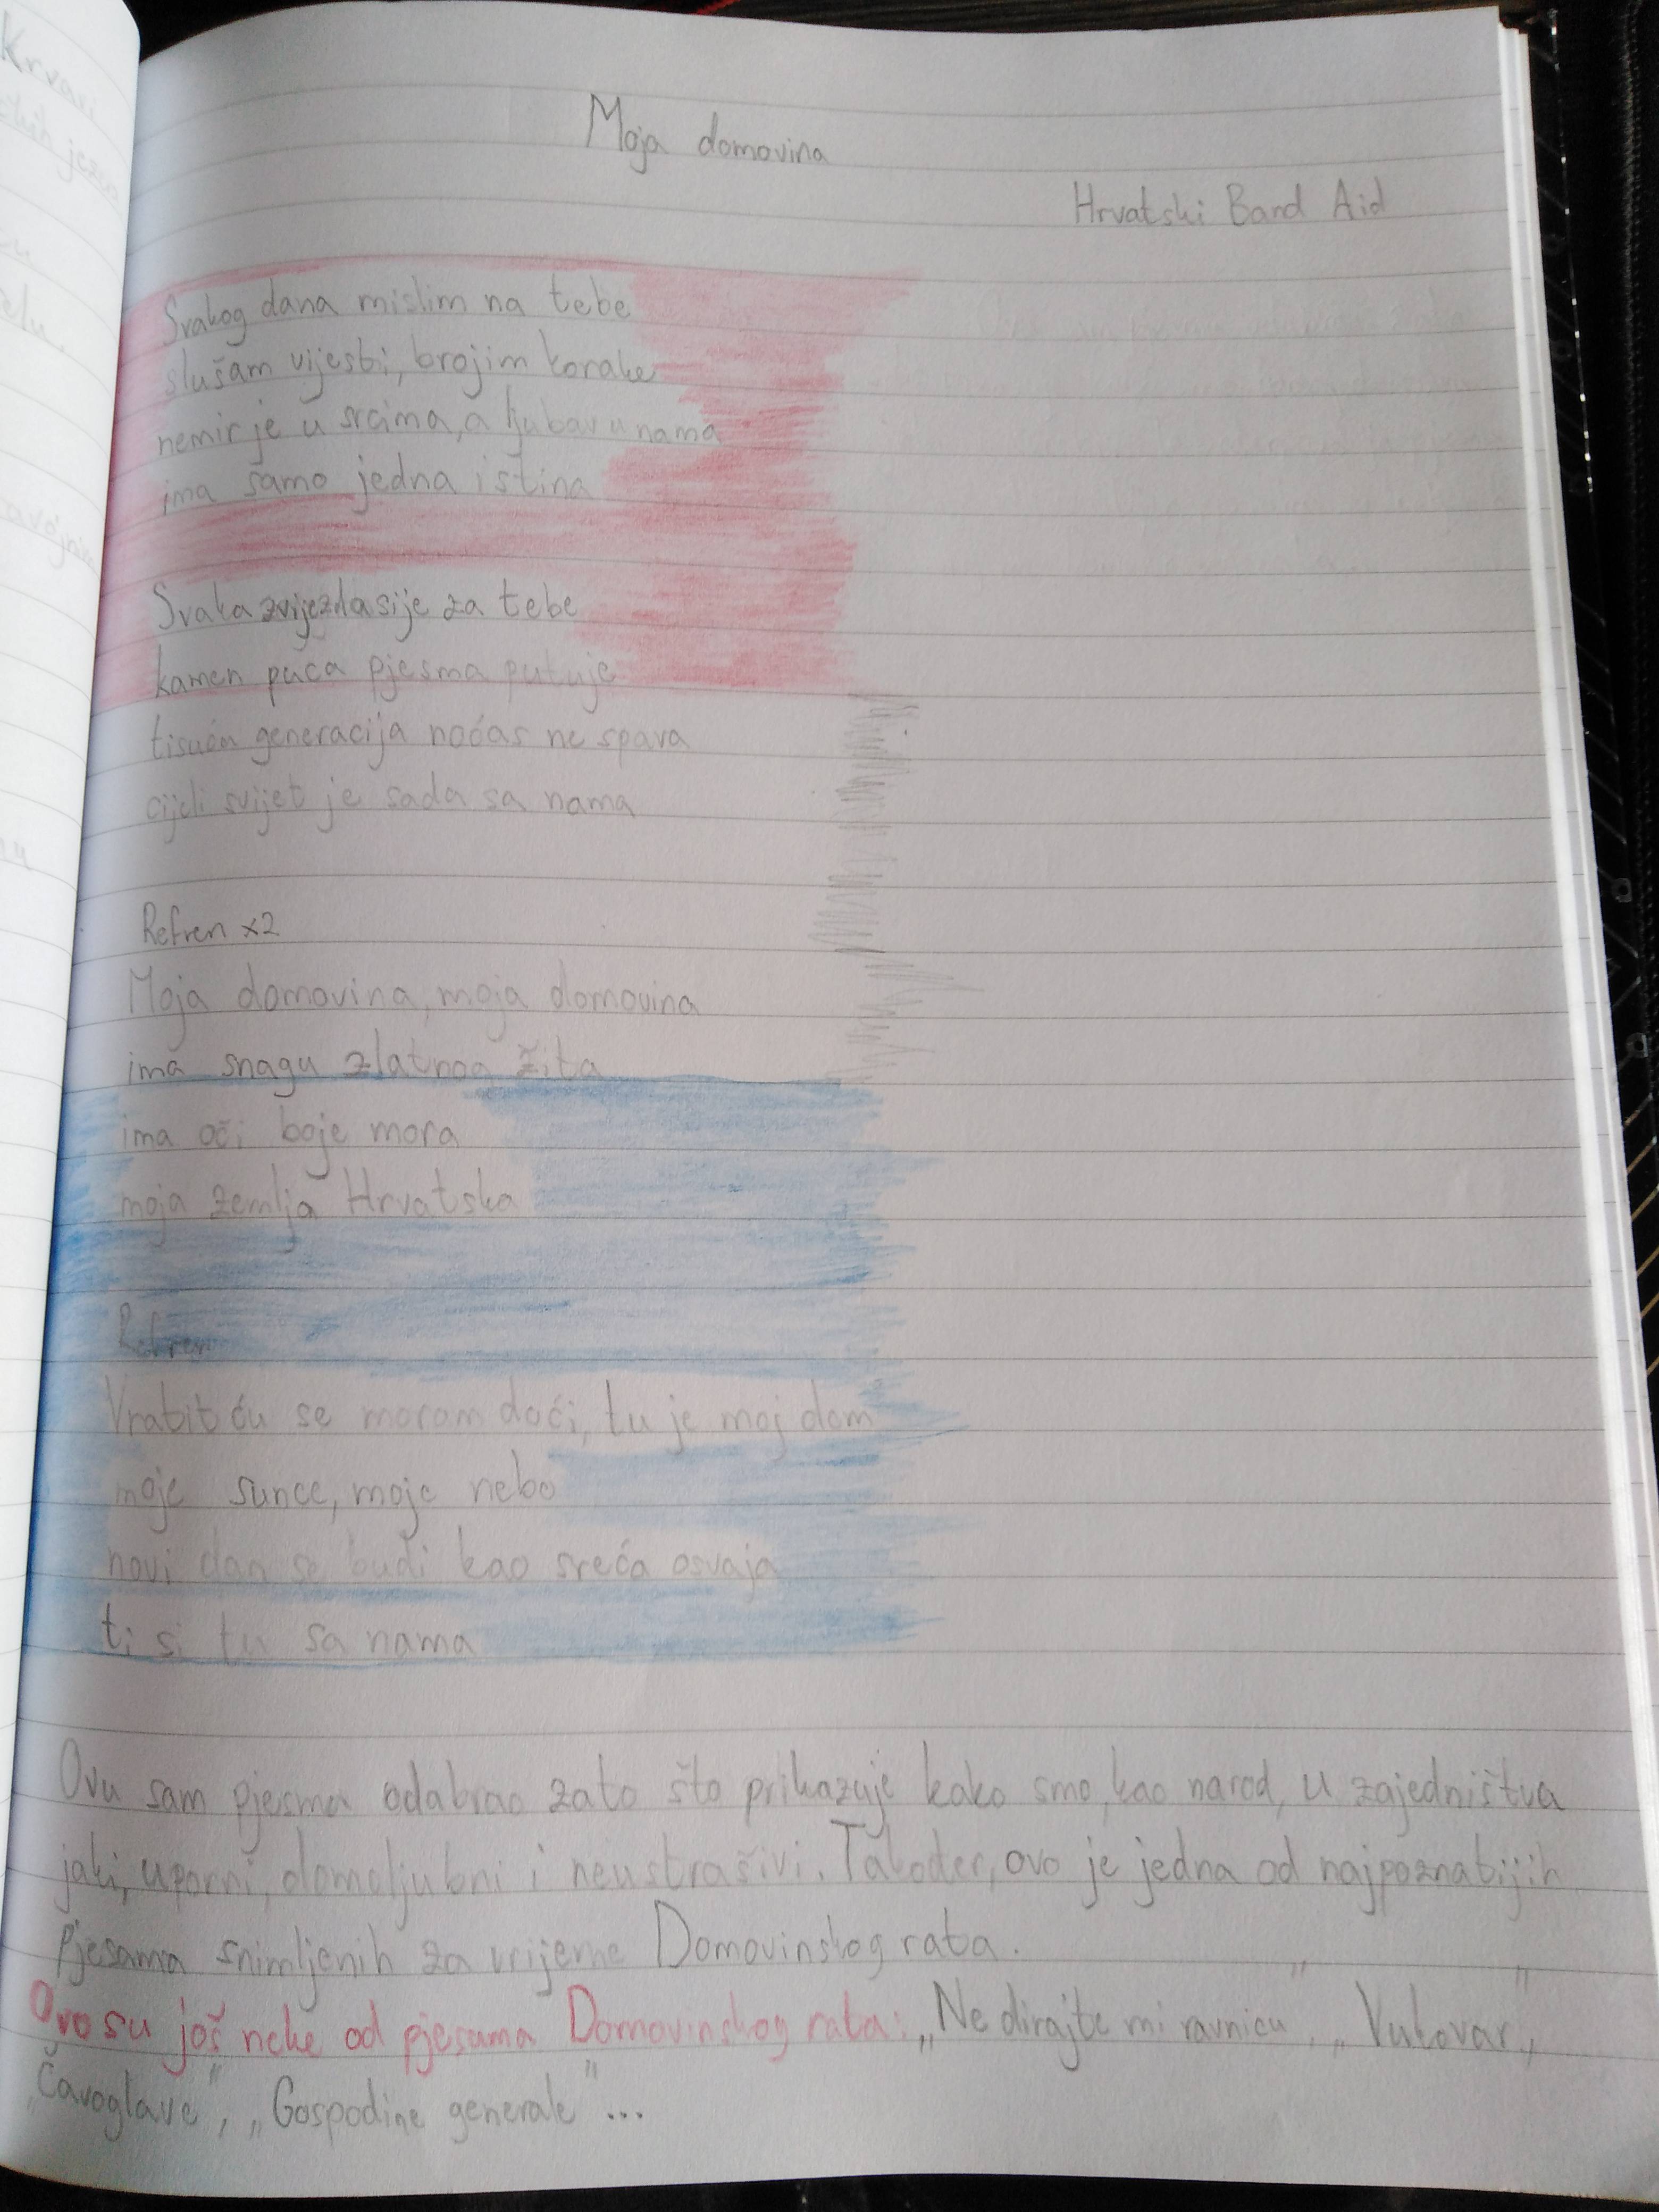 Krvari
Moja domovina
Hrvatski Band Aid
Svakog dana mislim na tebe
slušam vijesti, brojim korake
nemir je u srcima, a ljubav u nama
ima samo jedna istina
Svaka zvijezda sije za tebe
kamen puca pjesma putuje
tisuća generacija noćas ne spava
cijeli svijet je sada sa nama
Refren x2
Moja domovina, moja domovina
ima snagu zlatnog žita
ima oči boje mora
moja zemlja Hrvatska
Refren
Vratit ću se moram doći, tu je moj dom
moje sunce, moje nebo
novi dan se budi kao sreća osvaja
ti si tu sa nama
Ovu sam pjesmu odabrao zato što prikazuje kako smo, kao narod, u zajedništvu
jaki, uporni, domoljubni i neustrašivi. Također, ovo je jedna od najpoznatijih
pjesama snimljenih za vrijeme Domovinskog rata.
Ovo su još neke od pjesama Domovinskog rata: „Ne dirajte mi ravnicu", „Vukovar",
„Čavoglave", „Gospodine generale"...